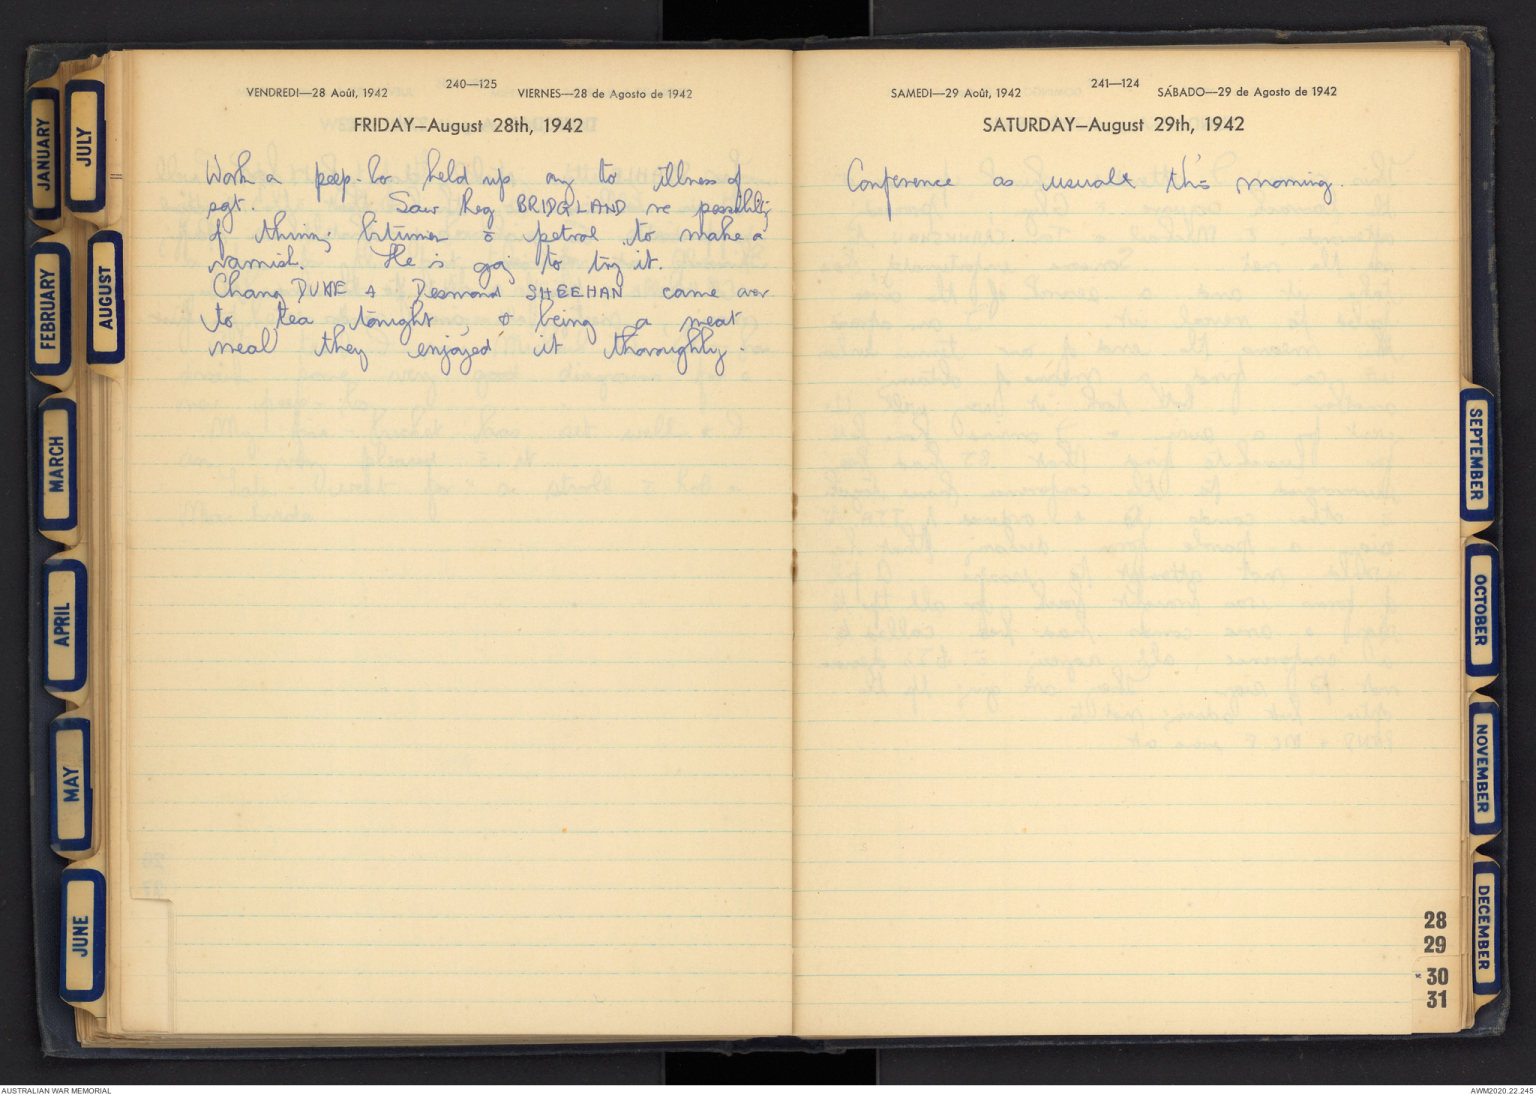 VENDREDI—28 Août, 1942
240—125
VIERNES—28 de Agosto de 1942
FRIDAY—August 28th, 1942
Work on peep-bo held up owing to illness of
sgt. Saw Reg BRIDGLAND re possibility
of thinning bitumen c̄ petrol to make a
varnish. He is going to try it.
Chang DUKE & Desmond SHEEHAN came over
to tea tonight, & being a meat
meal they enjoyed it thoroughly.
SAMEDI—29 Août, 1942
241—124
SÁBADO—29 de Agosto de 1942
SATURDAY—August 29th, 1942
Conference as usual this morning.
JANUARY
FEBRUARY
MARCH
APRIL
MAY
JUNE
JULY
AUGUST
SEPTEMBER
OCTOBER
NOVEMBER
DECEMBER
28
29
30
31
AUSTRALIAN WAR MEMORIAL
AWM2020.22.245